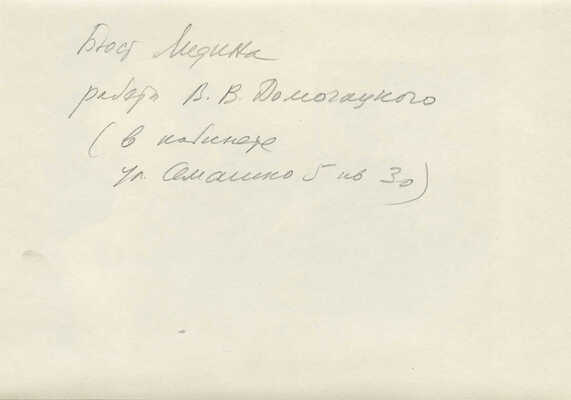 Бюст Медина
работы В. В. Домогацкого
(в кабинете
ул. Семашко 5 кв 30)